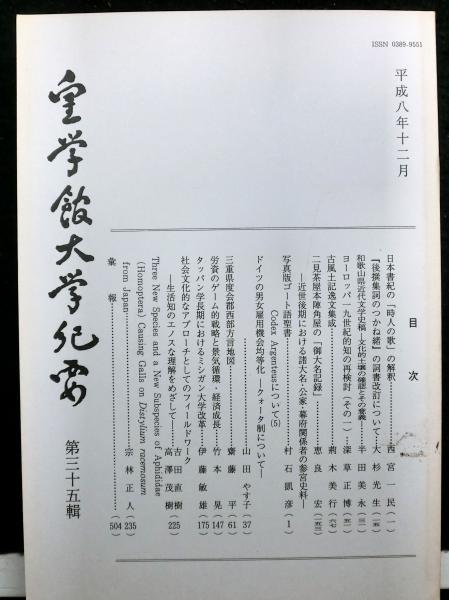 ISSN 0389-9551
平成八年十二月
目次
日本書紀の「時人の歌」の解釈……西宮一民(一)
『後撰集詞のつかね緒』の詞書改訂について……大杉光生(一五)
和歌山県近代文学史稿―文化的土壌の確認とその意義―……半田美永(三一)
ヨーロッパ一九世紀的知の再検討(その一)……深草正博(五一)
古風土記逸文集成……荊木美行(六七)
二見茶屋本陣角屋の「御大名記録」……恵良宏(一五三)
―近世後期における諸大名・公家・幕府関係者の参宮史料―
写真版ゴート語聖書
Codex Argenteusについて(5)……村石凱彦(1)
ドイツの男女雇用機会均等化―クォータ制について―
……山田やす子(37)
三重県度会郡西部方言地図……齋藤平(61)
労資のゲーム的戦略と景気循環・経済成長……竹本晃(147)
タッパン学長期におけるミシガン大学改革……伊藤敏雄(175)
社会文化的なアプローチとしてのフィールドワーク
―生活知のエノスな理解をめざして―……吉田直樹
高澤茂樹(225)
Three New Species and a New Subspecies of Aphididae
(Homoptera) Causing Galls on Distylium racemosum
from Japan……宗林正人(235)
彙報……(504)
皇学館大学紀要
第三十五輯